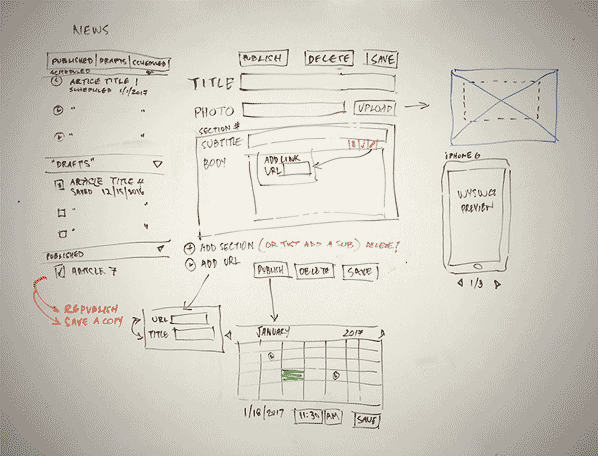 NEWS
PUBLISHED DRAFTS SCHEDULED
SCHEDULED
ARTICLE TITLE 1
SCHEDULED 1/1/2017
" "
" "
"DRAFTS"
ARTICLE TITLE 4
SAVED 12/15/2016
" "
" "
PUBLISHED
ARTICLE 7
REPUBLISH
SAVE A COPY
PUBLISH DELETE SAVE
TITLE
PHOTO UPLOAD
SECTION #
SUBTITLE
BODY
ADD LINK
URL
+ ADD SECTION (OR JUST ADD A SUB) DELETE?
ADD URL
PUBLISH DELETE SAVE
URL
TITLE
JANUARY 2017
1/18/2017 11:30 AM SAVE
iPHONE 6
WYSIWYG
PREVIEW
1/3